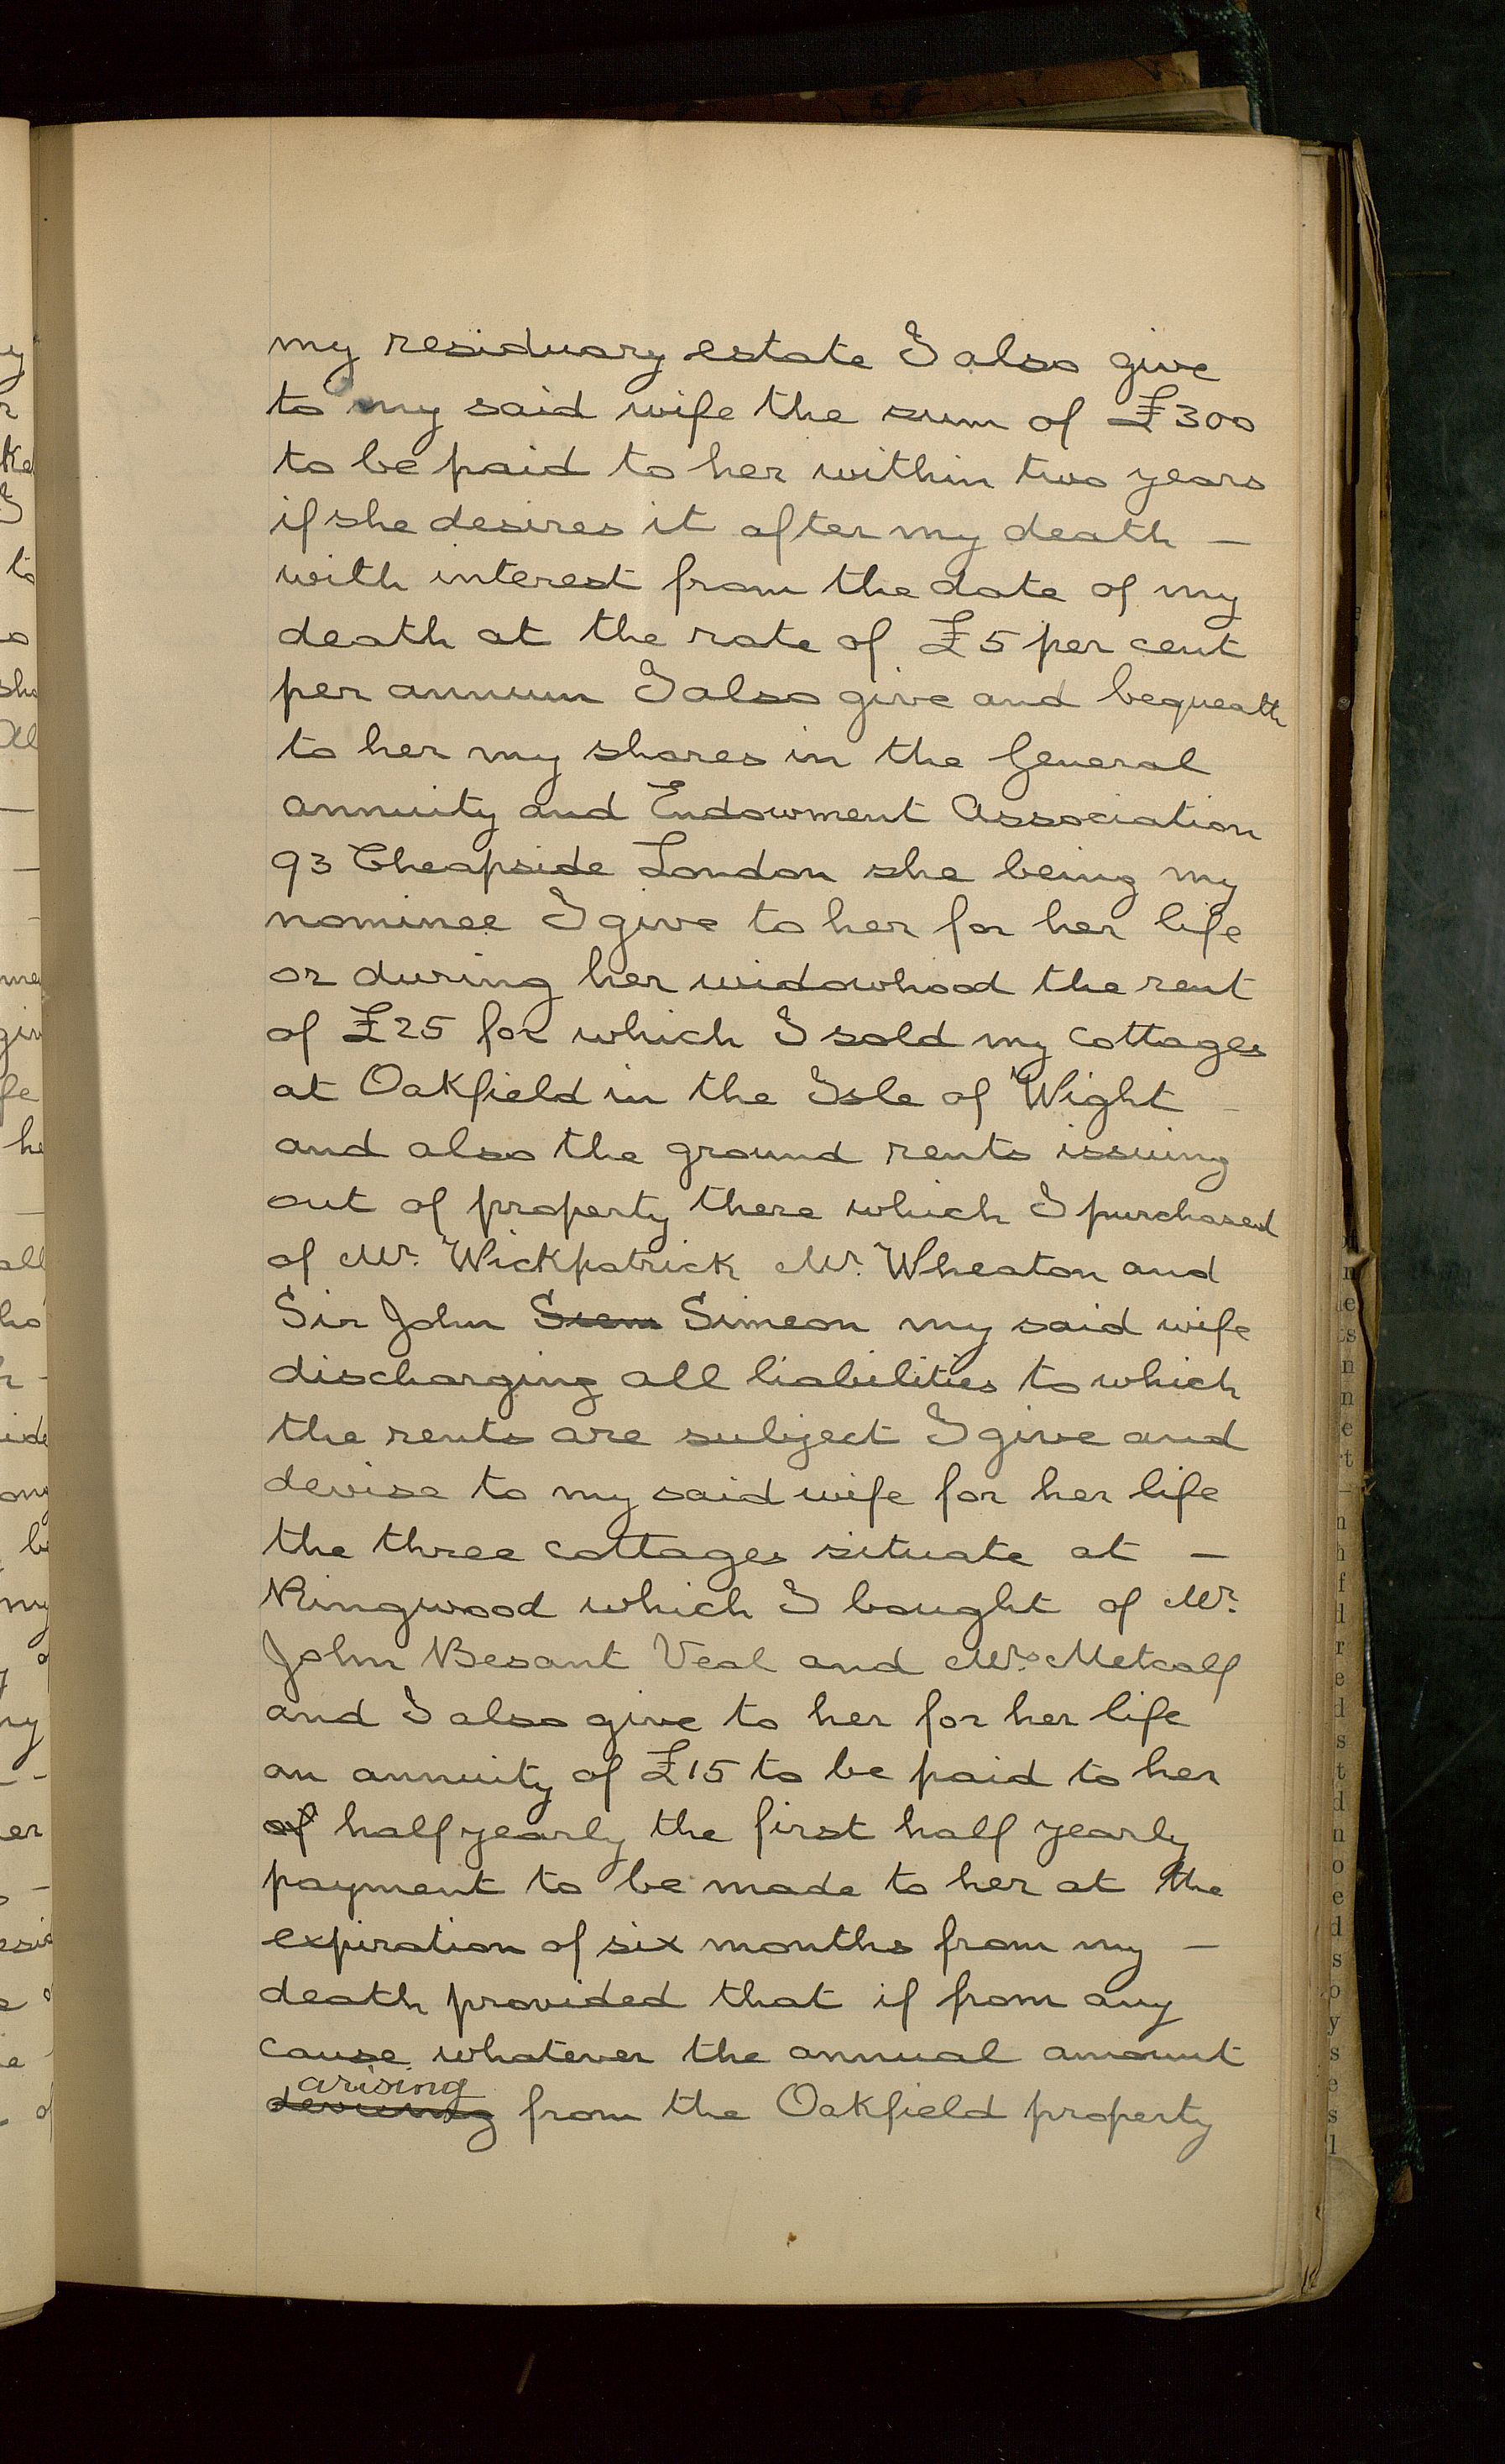 my residuary estate I also give
to my said wife the sum of £300
to be paid to her within two years
if she desires it after my death –
with interest from the date of my
death at the rate of £5 per cent
per annum I also give and bequeath
to her my shares in the General
annuity and Endowment Association
93 Cheapside London she being my
nominee I give to her for her life
or during her widowhood the rent
of £25 for which I sold my cottages
at Oakfield in the Isle of Wight –
and also the ground rents issuing
out of property there which I purchased
of Mr. Wickpatrick Mr. Wheaton and
Sir John Siem Simeon my said wife
discharging all liabilities to which
the rents are subject I give and
devise to my said wife for her life
the three cottages situate at –
Ringwood which I bought of Mr.
John Besant Veal and Mrs. Metcalf
and I also give to her for her life
an annuity of £15 to be paid to her
of half yearly the first half yearly
payment to be made to her at the
expiration of six months from my –
death provided that if from any
cause whatever the annual amount
arising
from the Oakfield property